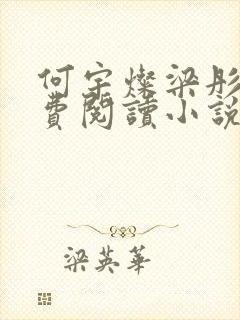 何宇燦梁彤
費閱讀小說
梁英華